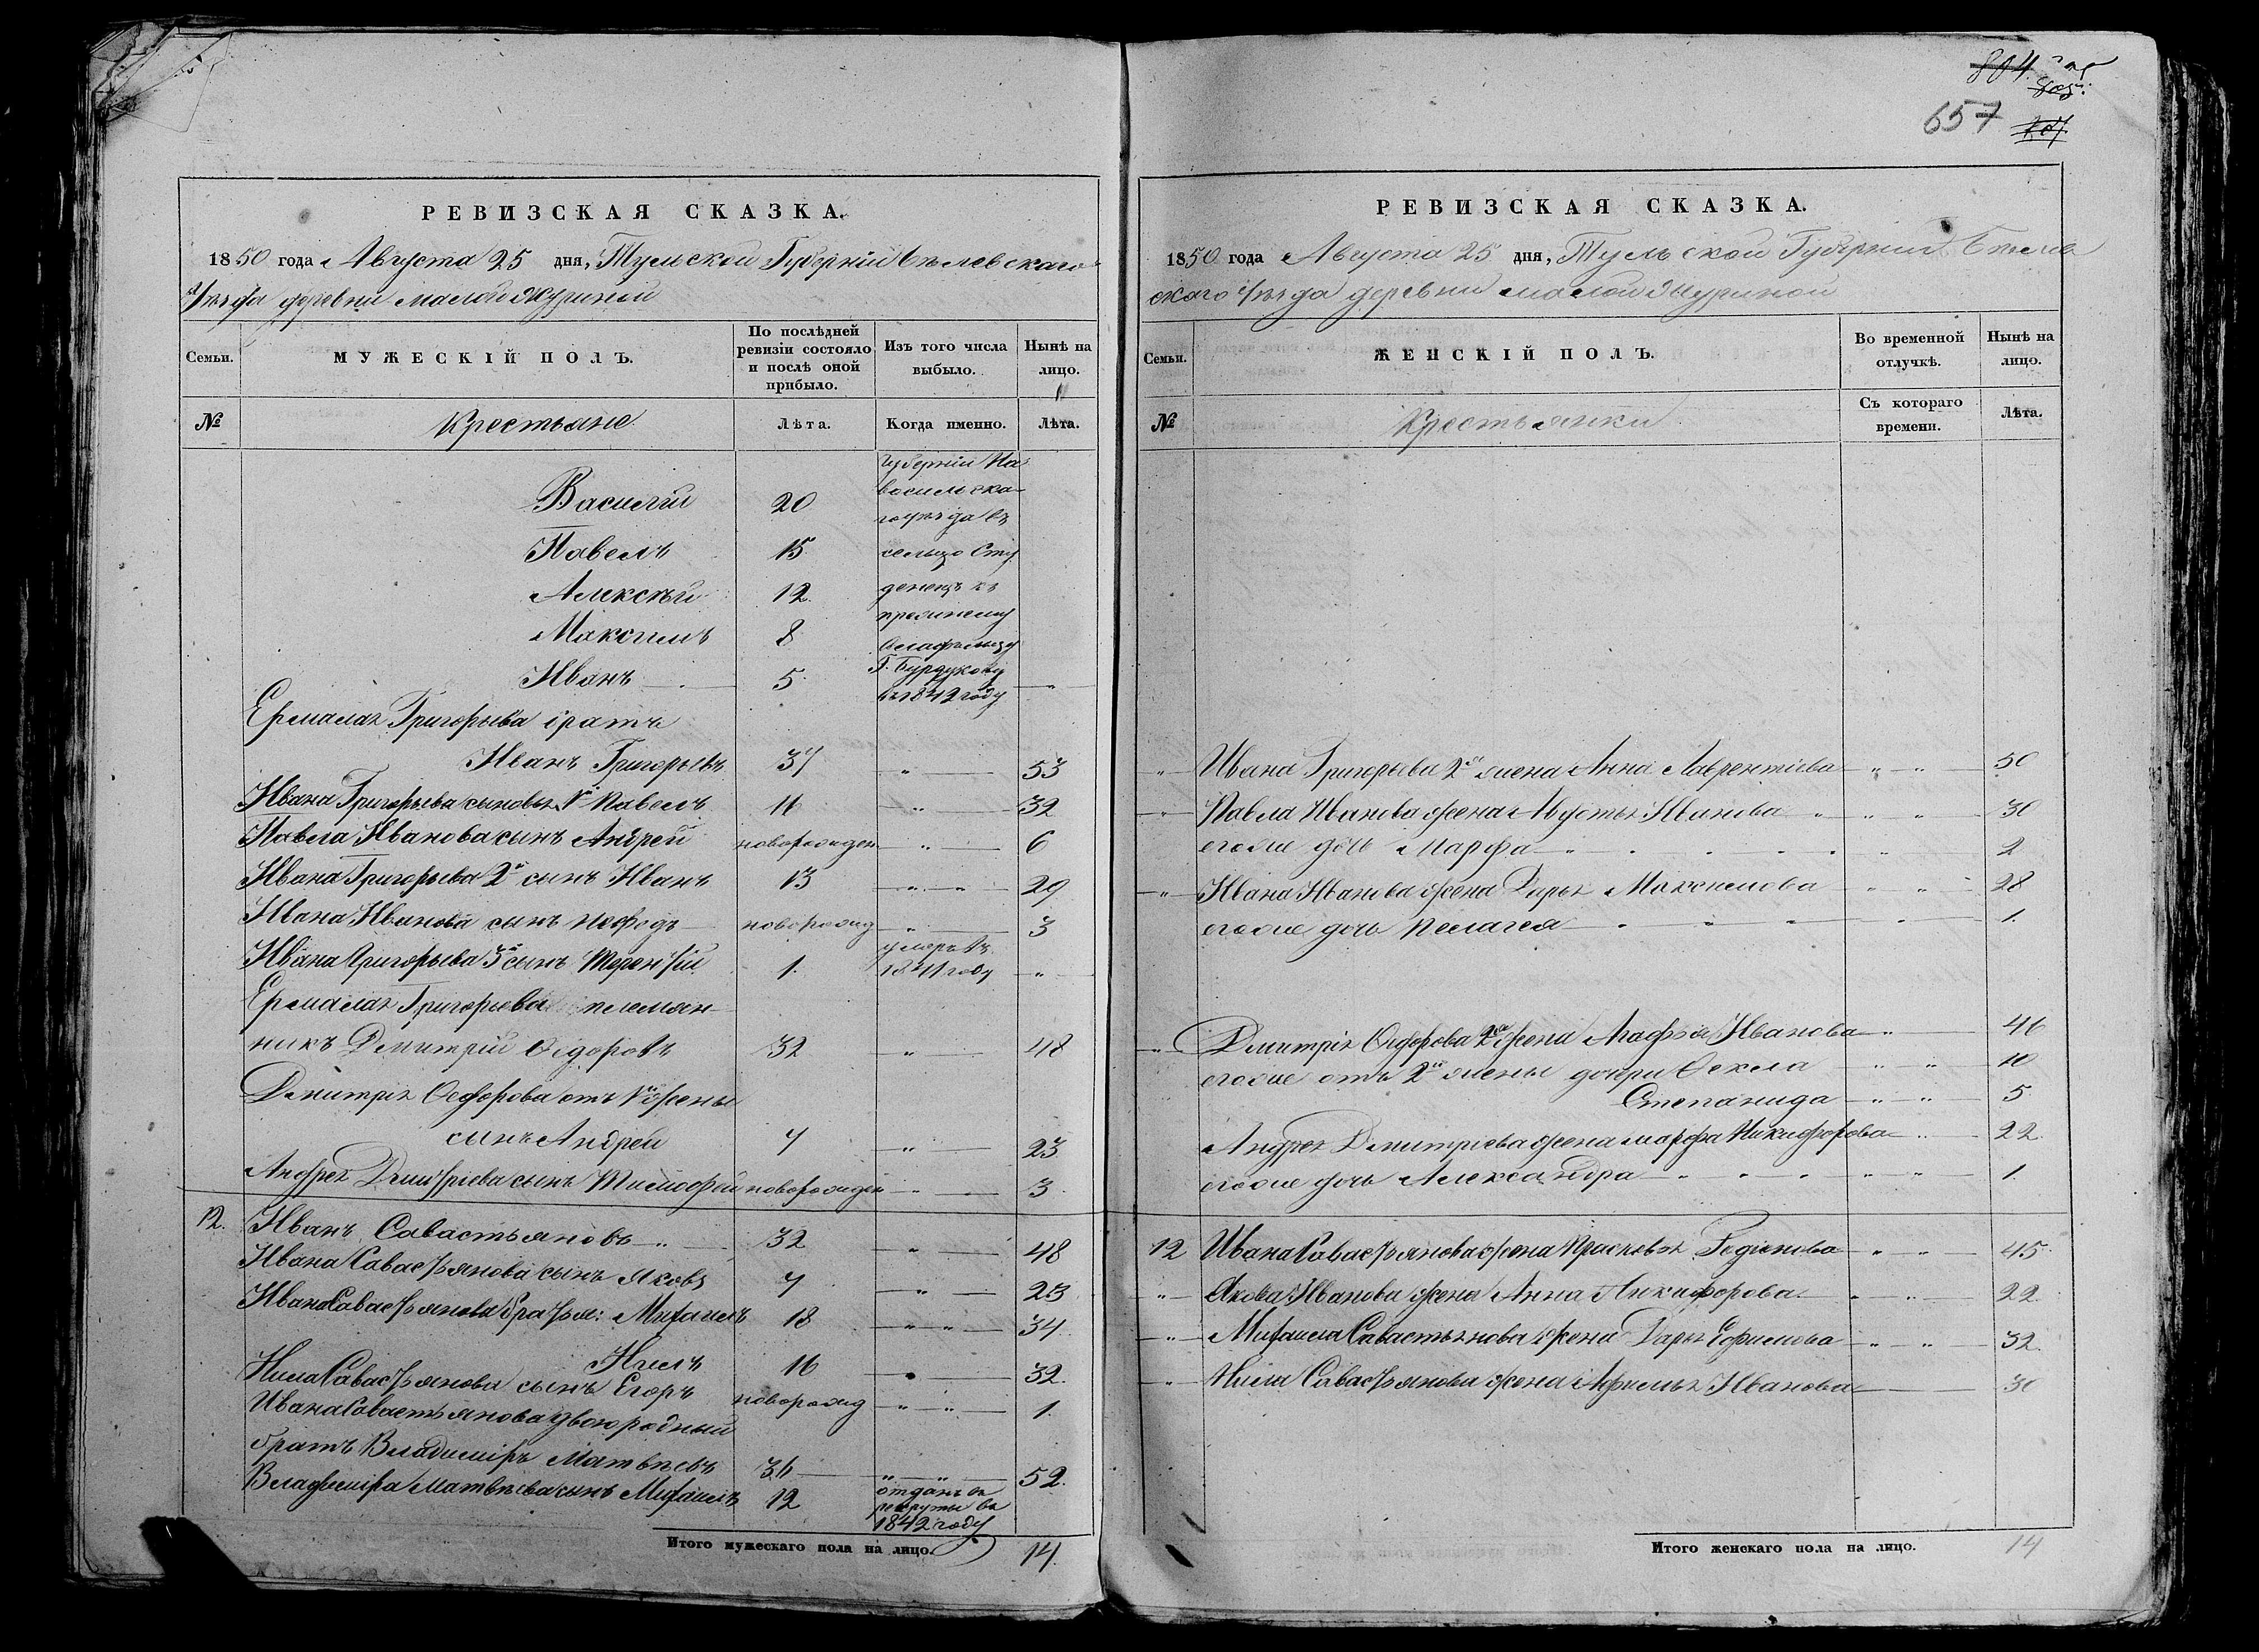 804.
657
РЕВИЗСКАЯ СКАЗКА.
1850 года Августа 25 дня, Тульской Губерніи Бѣлевскаго
Уѣзда деревни малой Журиной
Семьи.
МУЖЕСКІЙ ПОЛЪ.
По послѣдней ревизіи состояло и послѣ оной прибыло.
Изъ того числа выбыло.
Нынѣ на лицо.
№
Крестьяне
Лѣта.
Когда именно.
Лѣта.
Губерніи Но
Василій 20 восильска
го уѣзда въ
Павелъ 15 сельцо Сту
Алексѣй 12 денецъ къ
прежнему
Максимъ 8 владѣльцу
Иванъ 5 Г. Бурдукову
въ 1842 году
Ермалая Григорьева братъ
Иванъ Григорьевъ 37 " 53
Ивана Григорьева сыновья 1й Павелъ 16 " 32
Павла Иванова сынъ Андрей новорожден " 6
Ивана Григорьева 2й сынъ Иванъ 13 " " 29
Ивана Иванова сынъ Нефедъ новорожд " 3
умеръ въ
Ивана Григорьева 3й сынъ Терентій 1. 1841 году "
Ермалая Григорьева племян
никъ Дмитрій Ѳедоровъ 32 " 48
Дмитрія Ѳедорова отъ 1й жены
сынъ Андрей 7 " 23
Андрея Дмитріева сынъ Тимофей новорожден " 3
12. Иванъ Савастьяновъ " 32 " 48
Ивана Савастьянова сынъ Яковъ 7 " 23
Ивана Савастьянова братья: Михаилъ 18 " " 34
Нилъ 16 " 32.
Нила Савастьянова сынъ Егоръ новорожд " " 1.
Ивана Савастьянова двоюродный
братъ Владиміръ Матвѣевъ 36 " " 52.
Владиміра Матвѣева сынъ Михаилъ 12 отданъ въ
рекруты въ
1842 году
Итого мужескаго пола на лицо. 14.
РЕВИЗСКАЯ СКАЗКА.
1850 года Августа 25 дня, Тульской Губерніи Бѣлев
скаго уѣзда деревни малой Журиной
Семьи.
ЖЕНСКІЙ ПОЛЪ.
Во временной отлучкѣ.
Нынѣ на лицо.
№
Крестьянки
Съ котораго времени.
Лѣта.
" Ивана Григорьева 2я жена Анна Лаврентіева " " 50
" Павла Иванова жена Авдотья Иванова " " " 30
егоже дочь Марфа " 2
" Ивана Иванова жена Дарья Максимова " " 28
егоже дочь Пелагея " 1.
" Дмитрія Ѳедорова 2я жена Агафья Иванова " 46
егоже отъ 2й жены дочери Ѳекла " " 10
Степанида " " 5
Андрея Дмитріева жена Марфа Никифорова " 22.
егоже дочь Александра " " 1.
12 Ивана Савастьянова жена Прасковья Родіонова " " 45.
" Якова Иванова жена Анна Никифорова " " 22.
" Михаила Савастьянова жена Дарья Ефимова " " 32.
" Нила Савастьянова жена Афимья Иванова 30
Итого женскаго пола на лицо. 14